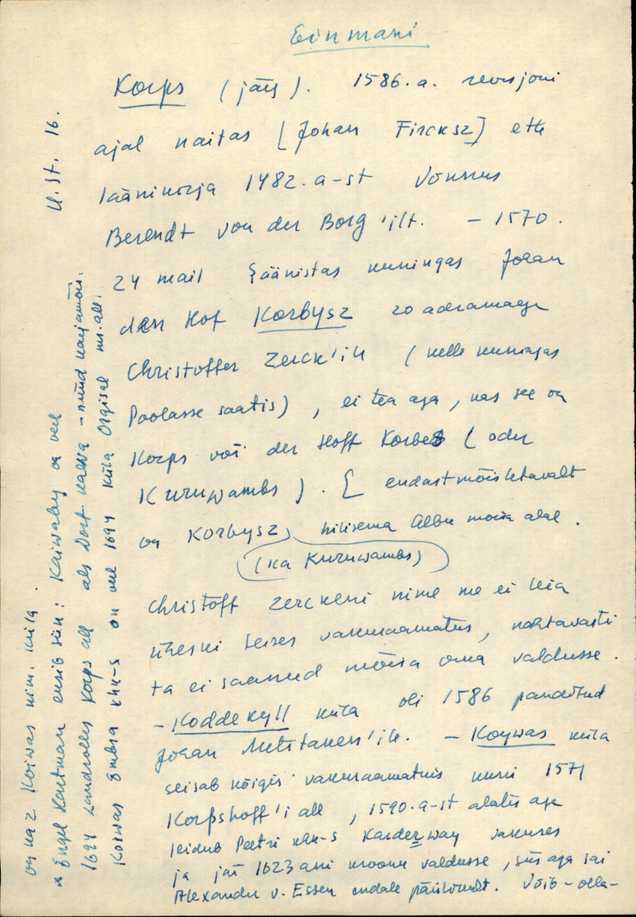 Einmani
Korps (järg). 1586.a. revisjoni
ajal näitas [Johan Fircksz] ette
läänikirja 1482.a-st Vönnus
Berendt von der Borg'ilt. – 1570.
24 mail läänistas kuningas Johan
den Hof Korbysz 20 adramaaga
Christoffer Zerck'ile (kelle kuningas
Poolasse saatis), ei tea aga, kas see on
Korps või der Hoff Korbes (oder
Kurnwambs). [ endastmõistetavalt
on Korbysz, hilisema Albu mõisa alal.
(ka Kurnwambs)
Christoff Zerckeni nime me ei leia
üheski teises vakuraamatus, nähtavasti
ta ei saanud mõisa oma valdusse.
– Koddekyll küla oli 1586 panditud
Johan 'ile. – Koywas küla
seisab kõigis vakuraamatuis kuni 1571
Korpshoff'i all, 1590.a-st alates aga
leidub Peetri khk-s Karderway vakuses
ja jäi 1623 ani krooni valdusse, siis aga sai
Alexander v. Essen endale pärisomdt. Võib-olla
U.St. 16.
on ka 2 Koiwas nim. küla.
x Engel Hartman eksib siin: Kaiwaby on veel
1694 Landrolles Korps all als Dorf Kaiwa – nüüd karjamõis.
Koiwas Embra khk-s on veel 1694 küla Orgisal ms. all.